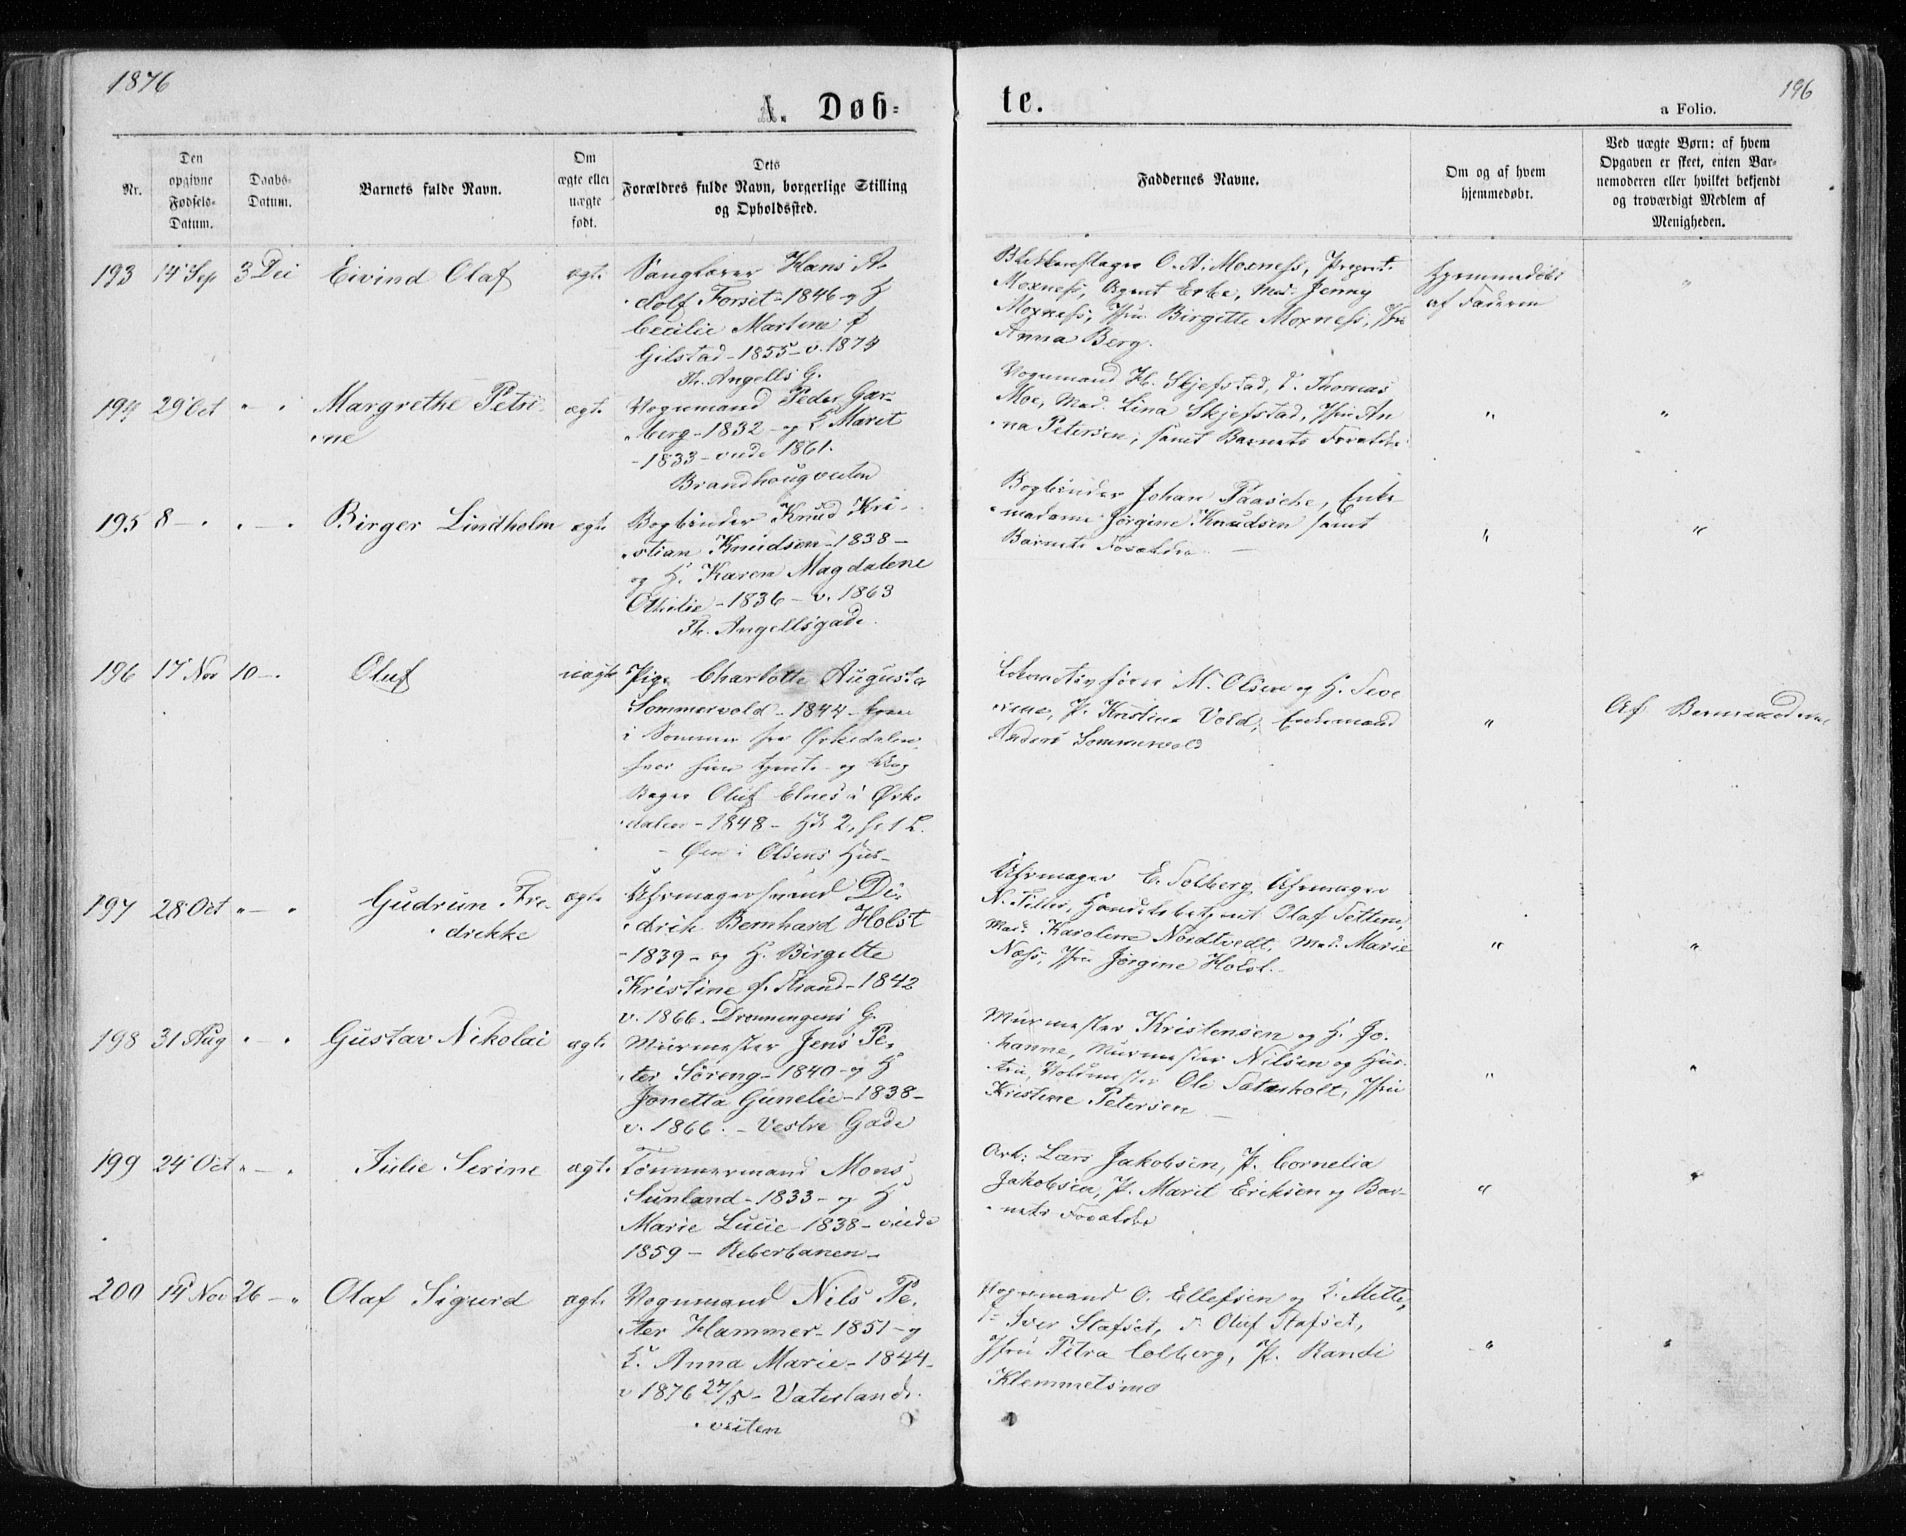 1876
196
A. Døb=
te.
a Folio.
Nr.
Den opgivne Fødsels-Datum.
Daabs-Datum.
Barnets fulde Navn.
Om ægte eller uægte født.
Dets Forældres fulde Navn, borgerlige Stilling og Opholdssted.
Faddernes Navne.
Om og af hvem hjemmedøbt.
Ved uægte Børn: af hvem Opgaven er skeet, enten Barnemoderen eller hvilket bekjendt og troværdigt Medlem af Menigheden.
193 14 Sep 3 Dec Eivind Olaf ægte
Sanglærer Hans A-
dolf Forset - 1846 - og H
Cecilie Martine f
Gilstad - 1855 - v. 1874
Th. Angells G.
O. A. Moxness,
Moxness, Agent Erbe, Mad. Jenny
Moxness, Jfru Birgitte Moxness, Jfru
Anna Berg.
Hjemmedøbt
af Faderen
"
194 29 Oct " - " Margrethe Petri-
ne
ægte
Vognmand Peder Gar-
berg - 1832 - og H Marit
- 1833 - viede 1861.
Brandhougveiten
Vognmand H. Skjefstad, d. Thomas
Moe, Mad. Lina Skjefstad, Jfru An-
na Petersen, samt Barnets Forældre
"
"
195 8 - " " - " Birger Lindholm ægte
Bogbinder Knud Kri-
stian Knudsen - 1838 -
og H. Karen Magdalene
Othilie - 1836 - v. 1863
Th. Angellsgade.
Bogbinder Johan Paasche, Enke-
madame Jørgine Knudsen samt
Barnets Forældre
"
"
196 17 Nov 10 - " Oluf uægte
Pige Charlotte Augusta
Sommervold - 1844 - kom
i Sommer fra Ørkedalen,
hvor hun tjente - og
Bager Oluf Elnes i Ørke-
dalen - 1848 - H 2, h 1 L.
- Øen i Olsens Hus -
Lokomotivfører M. Olsen og H. Seve-
rine, P. Kristine Vold, Enkemand
Anders Sommervold
"
Af Barnemoderen
197 28 Oct " - " Gudrun Fre-
drikke
ægte
Uhrmagersvend Di-
drik Bernhard Holst
- 1839 - og H. Birgitte
Kristine f. Strand - 1842
v. 1866. Dronningens G.
Uhrmager E. Solberg, Uhrmager
N. Tiller, Handelsbetjent Olaf Settem,
Mad. Karoline Nordtvedt, Mad. Marie
Næss, Jfru Jørgine Holst.
"
"
198 31 Aug " - " Gustav Nikolai ægte
Murmester Jens Pe-
ter Søreng - 1840 - og H
Jonetta Gunelie - 1838 -
v. 1866. - Vestre Gade
Murmester Kristensen og H. Jo-
hanne, Murmester Nilsen og Hus-
tru, Ole Saterholt, Jfru
Kristine Petersen
"
"
199 24 Oct " - " Julie Serine ægte
Tømmermand Mons
Sunland - 1833 - og H
Marie Lucie - 1838 - viede
1859 - Reberbanen -
Arb: Lars Jakobsen, P. Cornelia
Jakobsen, P. Marit Eriksen og Bar-
nets Forældre
"
"
200 14 Nov 26 - " Olaf Sigurd ægte
Vognmand Nils Pe-
ter Hammer - 1851 - og
H. Anna Marie - 1844 -
v 1876 27/5 - Vaterlands-
veiten
Vognmand O. Ellefsen og H. Mette,
Iver Stafset, Oluf Stafset,
Jfru Petra Colberg, P. Randi
Klemmetsmo
"
"